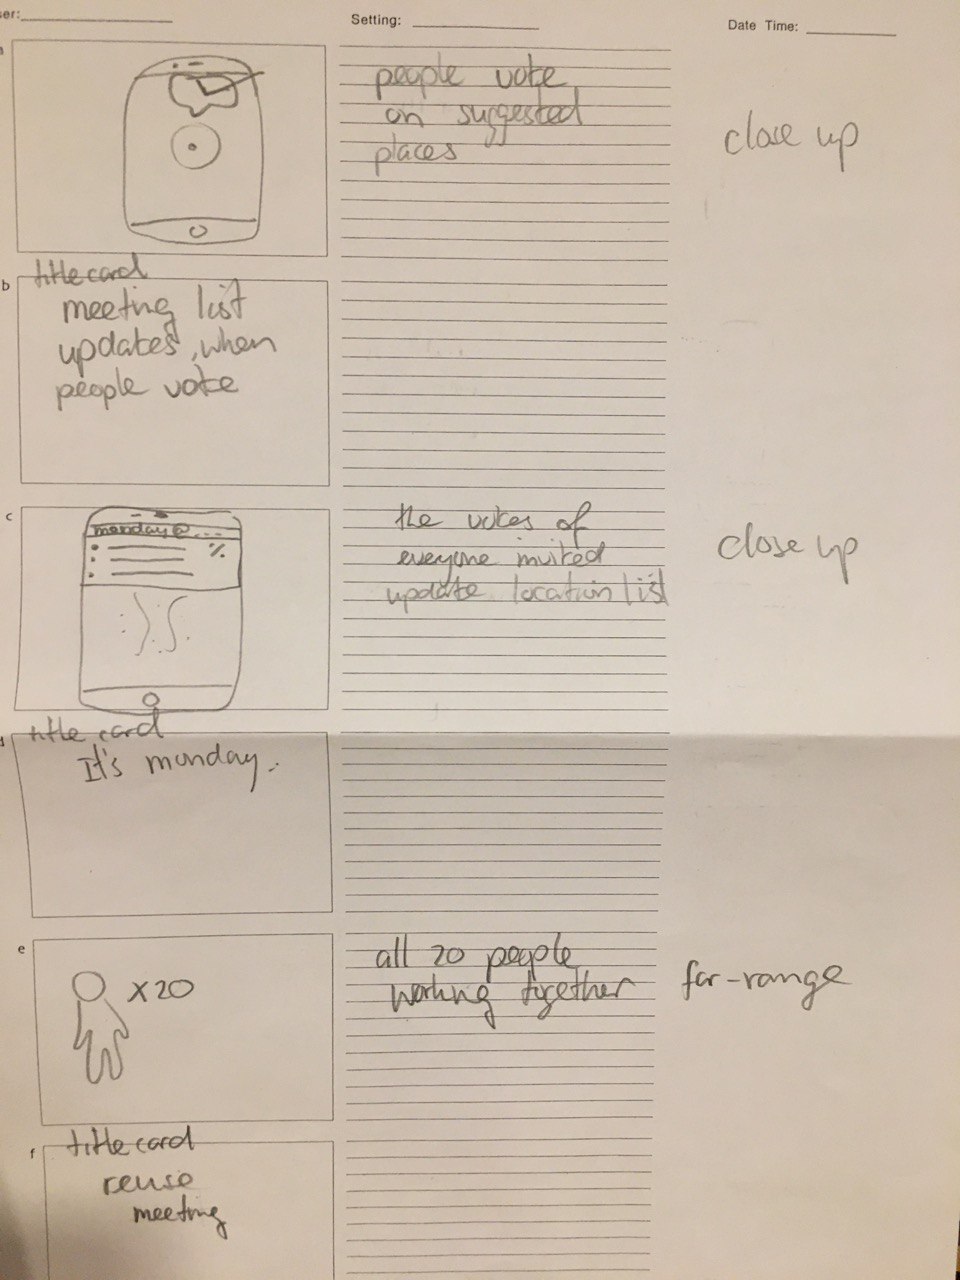 ser:
Setting:
Date Time:
people vote
on suggested
places
close up
b
title card
meeting list
updates, when
people vote
c
monday @...
%
the votes of
everyone invited
update location list
close up
title card
It's monday.
e
X20
all 20 people
working together
far-range
f
title card
reuse
meeting